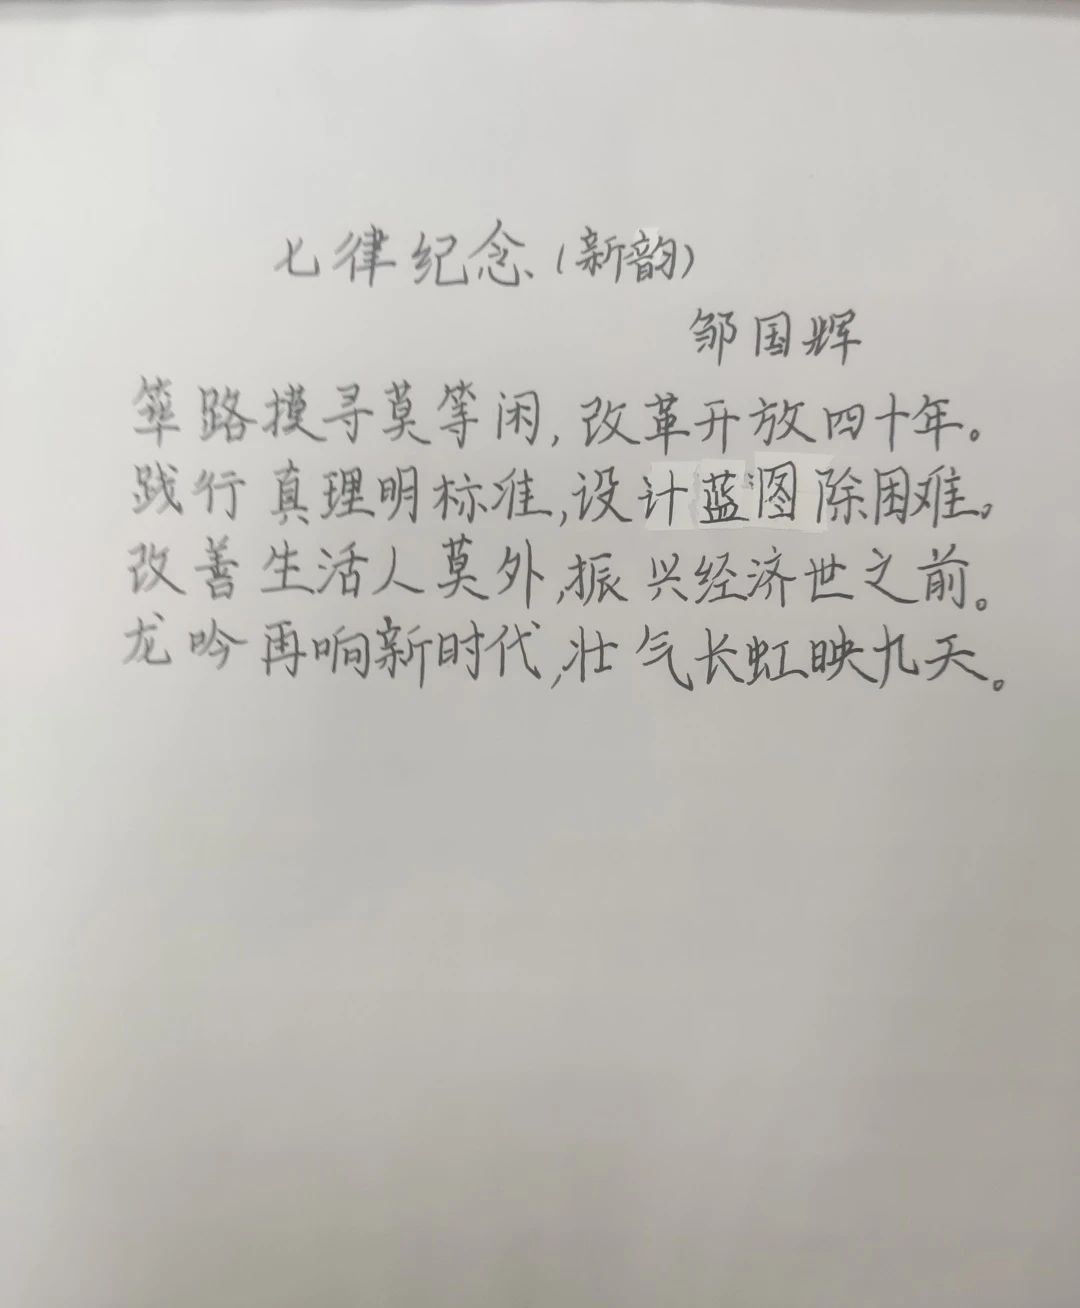 七律纪念(新韵)
邹国辉
筚路摸寻莫等闲,改革开放四十年。
践行真理明标准,设计蓝图除困难。
改善生活人莫外,振兴经济世之前。
龙吟再响新时代,壮气长虹映九天。